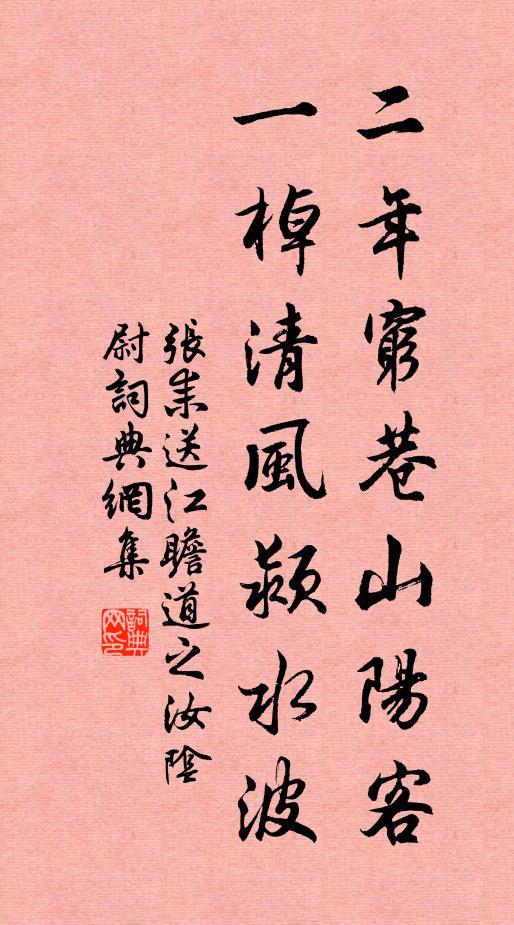 二年窮巷山陽客
一棹清風潁水波
張耒送江瞻道之汝陰
尉詞典網集
詞典網印